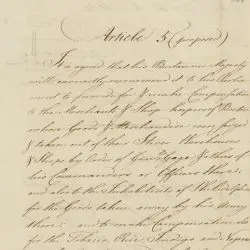 Article 5 (proposed)
It is agreed that his Britannic Majesty
will earnestly recommend it to his Parlia
ment to provide for & make Compensation
to the Merchants & Shop keepers of Boston
whose Goods & Merchandise were seized
& taken out of their Stores Warehouses
& Shops by Order of General Gage & others of
his Commanders or Officers there;
and also to the Inhabitants of Philadelphia
for the Goods taken away by his Army
there; and to make Compensation also
for the Tobacco, Rice, Indigo and Negroes